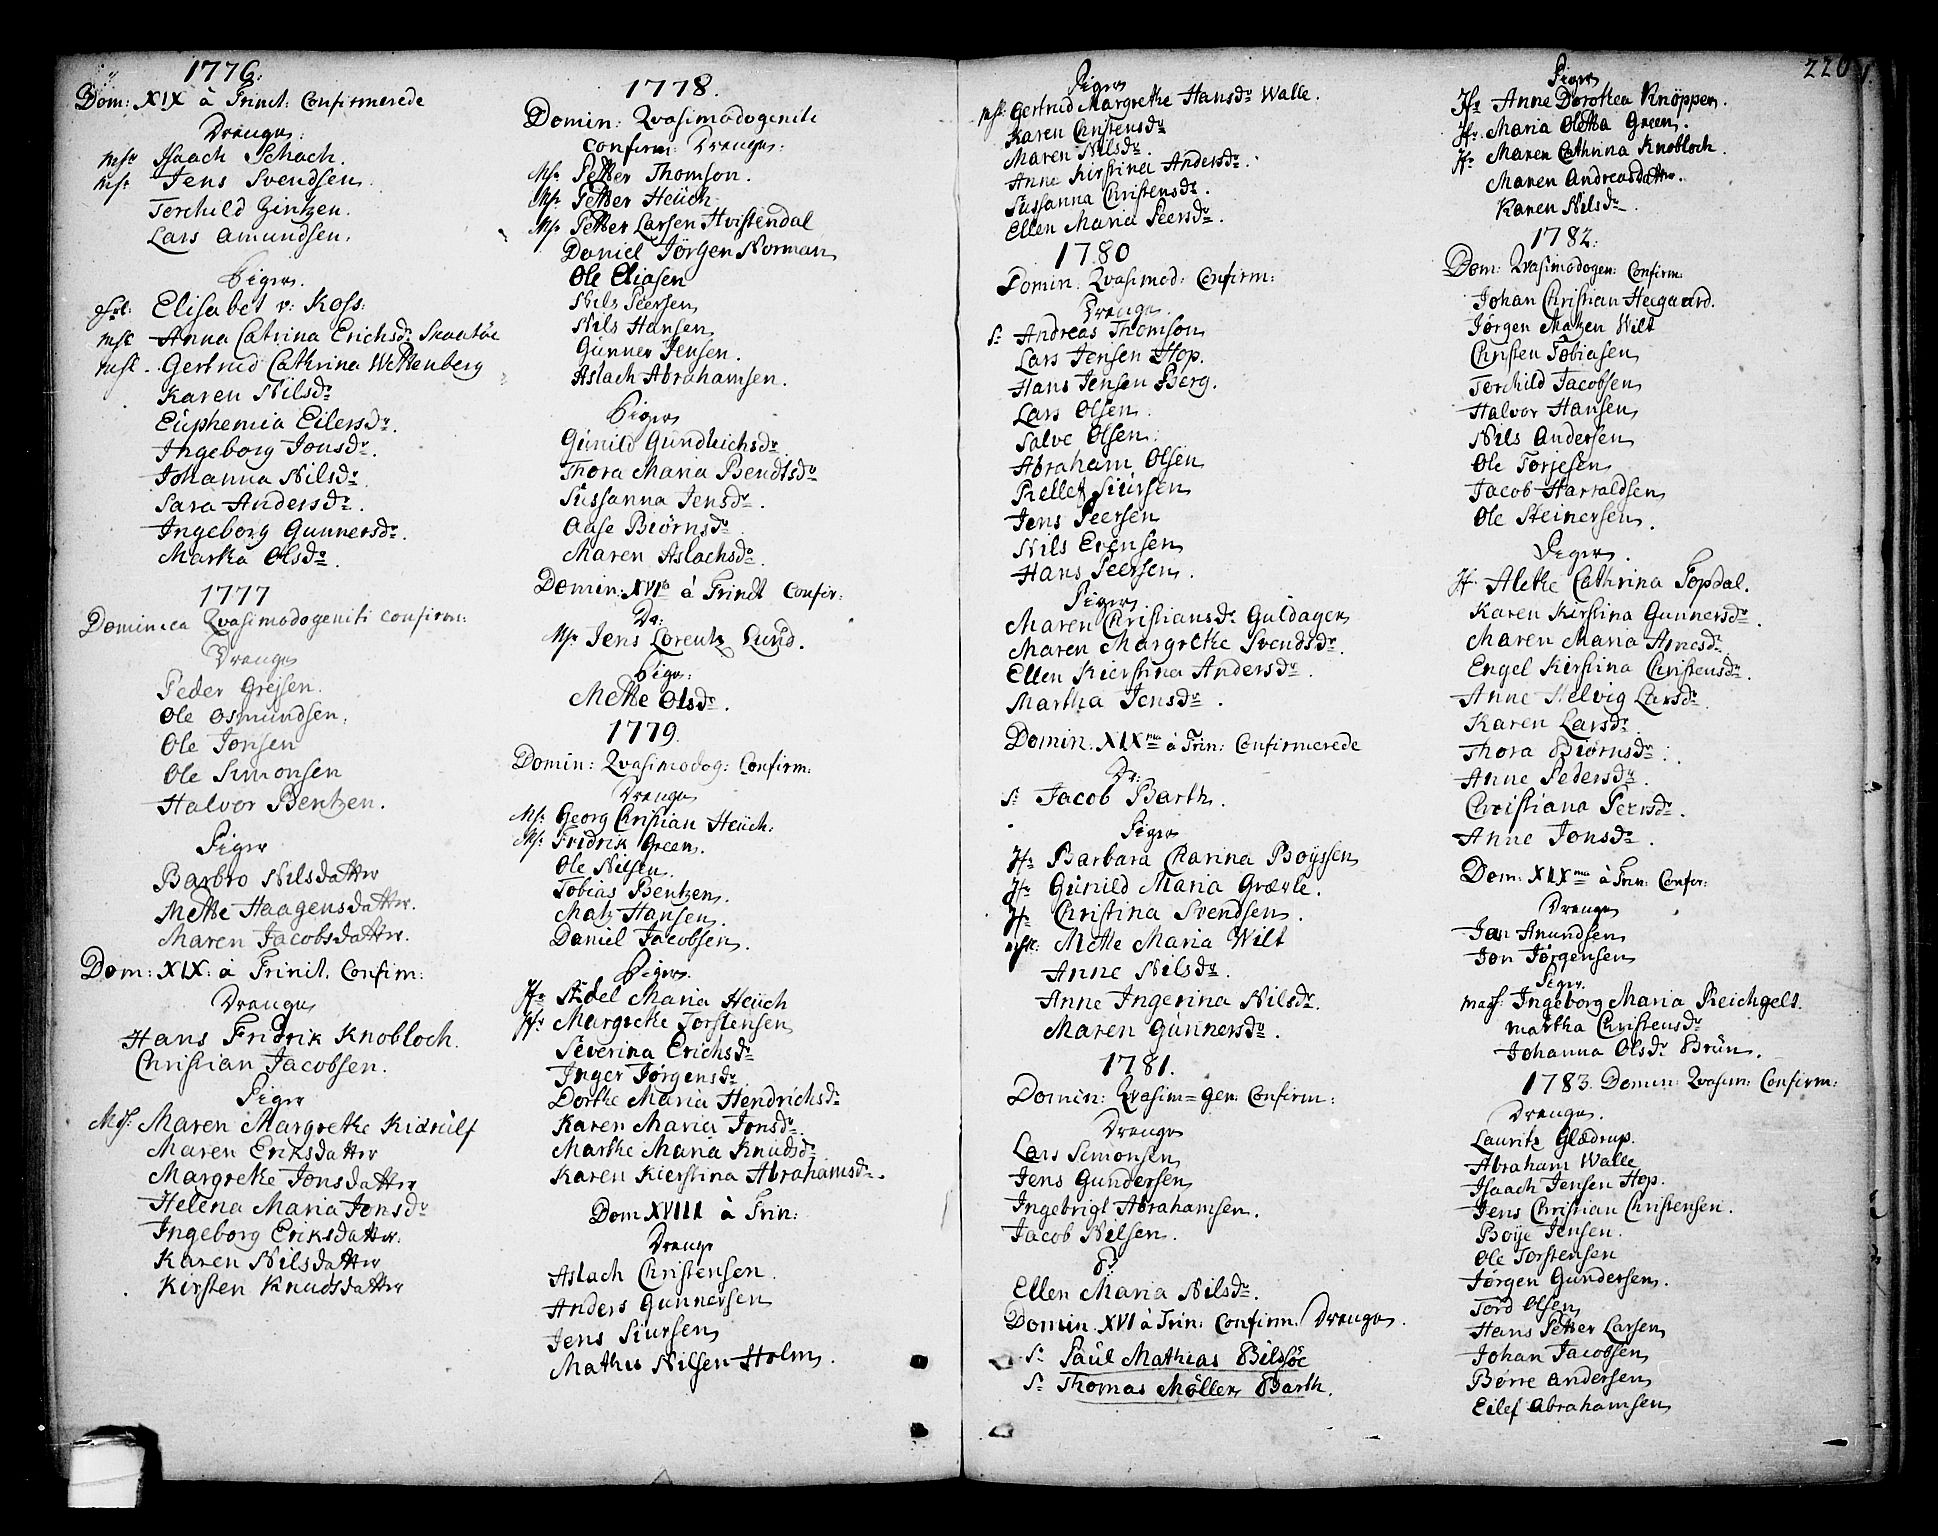 1776.
Dom: XIX à Trinit: Confirmerede
Drenge:
Msr Isaach Schach.
Msr Jens Svendsen.
Terchild Zintzen.
Lars Amundsen.
Piger.
Elisabet v: Koss:
Anna Catrina Erichsdr Skaatöe
Gertrud Cathrina Wettenberg
Karen Nilsdr
Euphemia Eilersdr.
Ingeborg Jonsdr.
Johanna Nilsdr.
Sara Andersdr.
Ingeborg Gunnersdr.
Martha Olsdr.
1777
Dominica Qvasimodogeniti confirm:
Drenge
Peder Grejsen.
Ole Osmundsen.
Ole Jonsen
Ole Simonsen
Halvor Bentzen.
Piger
Barbro Nilsdatter
Mette Haagensdatter.
Maren Jacobsdatter.
Dom: XIX: à Trinit. Confirm:
Drenge
Hans Fridrik Knobloch.
Christian Jacobsen.
Piger
Maren Margrethe Kidrülf
Maren Eriksdatter
Margrethe Jonsdatter
Helena Maria Jonsdr
Ingeborg Eriksdatter.
Karen Nilsdatter
Kirsten Knudsdatter
1778.
Domin: Qvasimodogeniti
confirm: Drenge:
Msr Petter Thomson.
Msr Petter Heüch
Msr Petter Larsen Hvistendal
Daniel Jörgen Norman
Ole Eliasen
Nils Peersen
Nils Hansen
Gunner Jensen.
Aslach Abrahamsen.
Piger
Gunild Gundleichsdr
Thora Maria Bendtsdr
Sussanna Jensdr.
Aase Biörnsdr
Maren Aslachsdr.
Domin: XVIta à Trinit Confir:
Dr:
Msr Jens Lorentz Lund.
Pige:
Mette Olsdr.
1779.
Domin: Qvasimodog: Confirm:
Drenge
Msr Georg Christian Heüch.
Msr Fridrik Green.
Ole Nilsen.
Tobias Bentzen.
Matz Hansen.
Daniel Jacobsen.
Piger.
Jfr Sidel Maria Heüch
Jfr Margrethe Torstensen
Severina Erichsdr
Inger Jörgensdr
Dorthe Maria Hendrichsdr
Karen Maria Jonsdr.
Marthe Maria Knudsdr
Karen Kierstina Abrahamsdr.
Dom XVIII à Trin:
Drenge
Aslach Christensen.
Anders Gunnersen
Jens Siursen
Mathis Nilsen Holm.
Piger
Gertrud Margrethe Hansdr Walle.
Karen Christensdr
Maren Nilsdr.
Anne Kirstina Andersdr.
Sussanna Christensdr.
Ellen Maria Peersdr.
1780
Domin. Qvasimod: Confirm:
Drenge.
S. Andreas Thomson
Lars Jensen Hop.
Hans Jensen Berg.
Lars Olsen.
Salve Olsen.
Abraham Olsen
Rellef Siursen
Jens Peersen
Nils Evensen
Hans Peersen.
Piger
Maren Christiansdr Guldager
Maren Margrethe Svendsdr.
Ellen Kierstina Andersdr.
Martha Jensdr.
Domin. XIXma à Trin: Confirmerede
Dr:
S. Jacob Barth.
Piger
Jfr Barbara Charina Boyssen
Jfr Gunild Maria Grærle.
Jfr Christina Svendsen.
Mette Maria Wilt
Anne Nilsdr.
Anne Ingerina Nilsdr.
Maren Gunnersdr.
1781.
Domin: Qvasim=gen: Confirm:
Drenge
Lars Simonsen
Jens Gundersen
Ingebrigt Abrahamsen.
Jacob Nilsen.
P:
Ellen Maria Nilsdr.
Domin. XVI à Trin: Confirm: Drenge.
S. Paul Mathias Bildsöe
S. Thomas Möller Barth.
220
Piger
Jfr Anne Dorothea Knöpper.
Jfr Maria Oletta Green.
Jfr Maren Cathrina Knobloch.
Maren Andreasdatter.
Karen Nilsdr.
1782.
Dom: Qvasimodogen: Confirm:
Johan Christian Heegaard.
Jörgen Matzen Wilt
Christen Tobiasen
Terchild Jacobsen
Halvor Hansen
Nils Andersen
Ole Torjesen
Jacob Harraldsen
Ole Steinersen.
Piger.
Jf. Alethe Cathrina Topdal.
Karen Kirstina Gunnersdr.
Maren Maria Arnesdr.
Engel Kirstina Christensdr.
Anne Helvig Larsdr.
Karen Larsdr
Thora Biörnsdr.
Anne Pedersdr
Christiana Peersdr.
Anne Jonsdr.
Dom: XIXma à Trin: Confir:
Drenge
Jan Anundsen
Jon Jörgensen
Piger.
Ingeborg Maria Reichgelt.
Martha Christensdr
Johanna Olsdr Brün.
1783. Domin: Qvasim: Confirm:
Drenge.
Lauritz Glædrup.
Abraham Walle
Isaach Jensen Hop.
Jens Christian Christensen.
Boye Jensen.
Ole Torstensen
Jörgen Gundersen.
Tord Olsen
Hans Petter Larsen
Johan Jacobsen
Börre Andersen
Eilef Abrahamsen